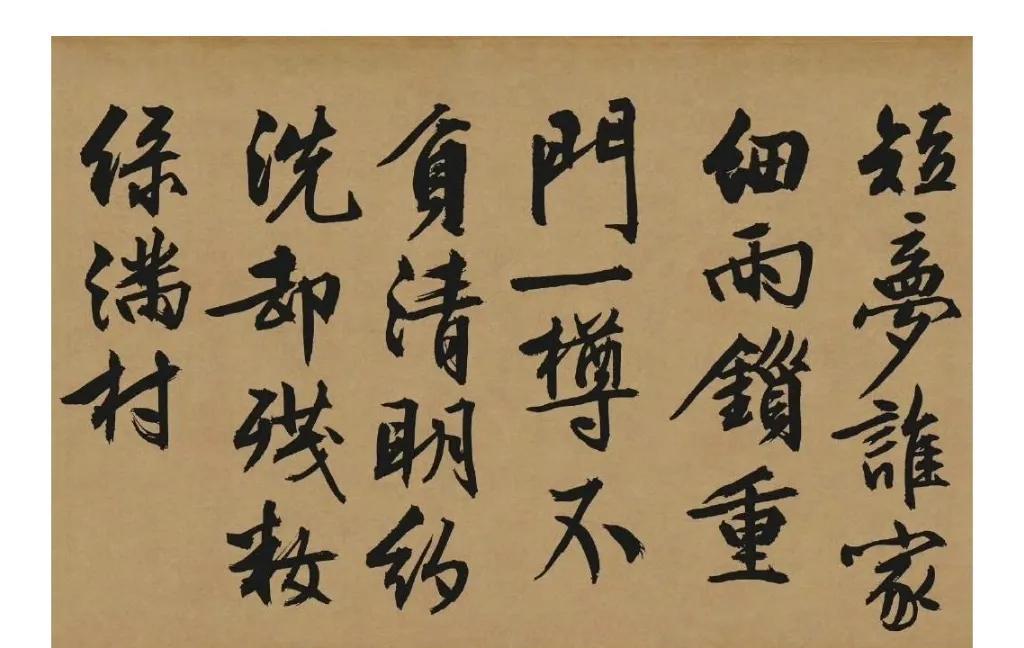 短夢誰家
細雨鎻重
門一樽不
負清明約
洗却殘妝
緑滿村